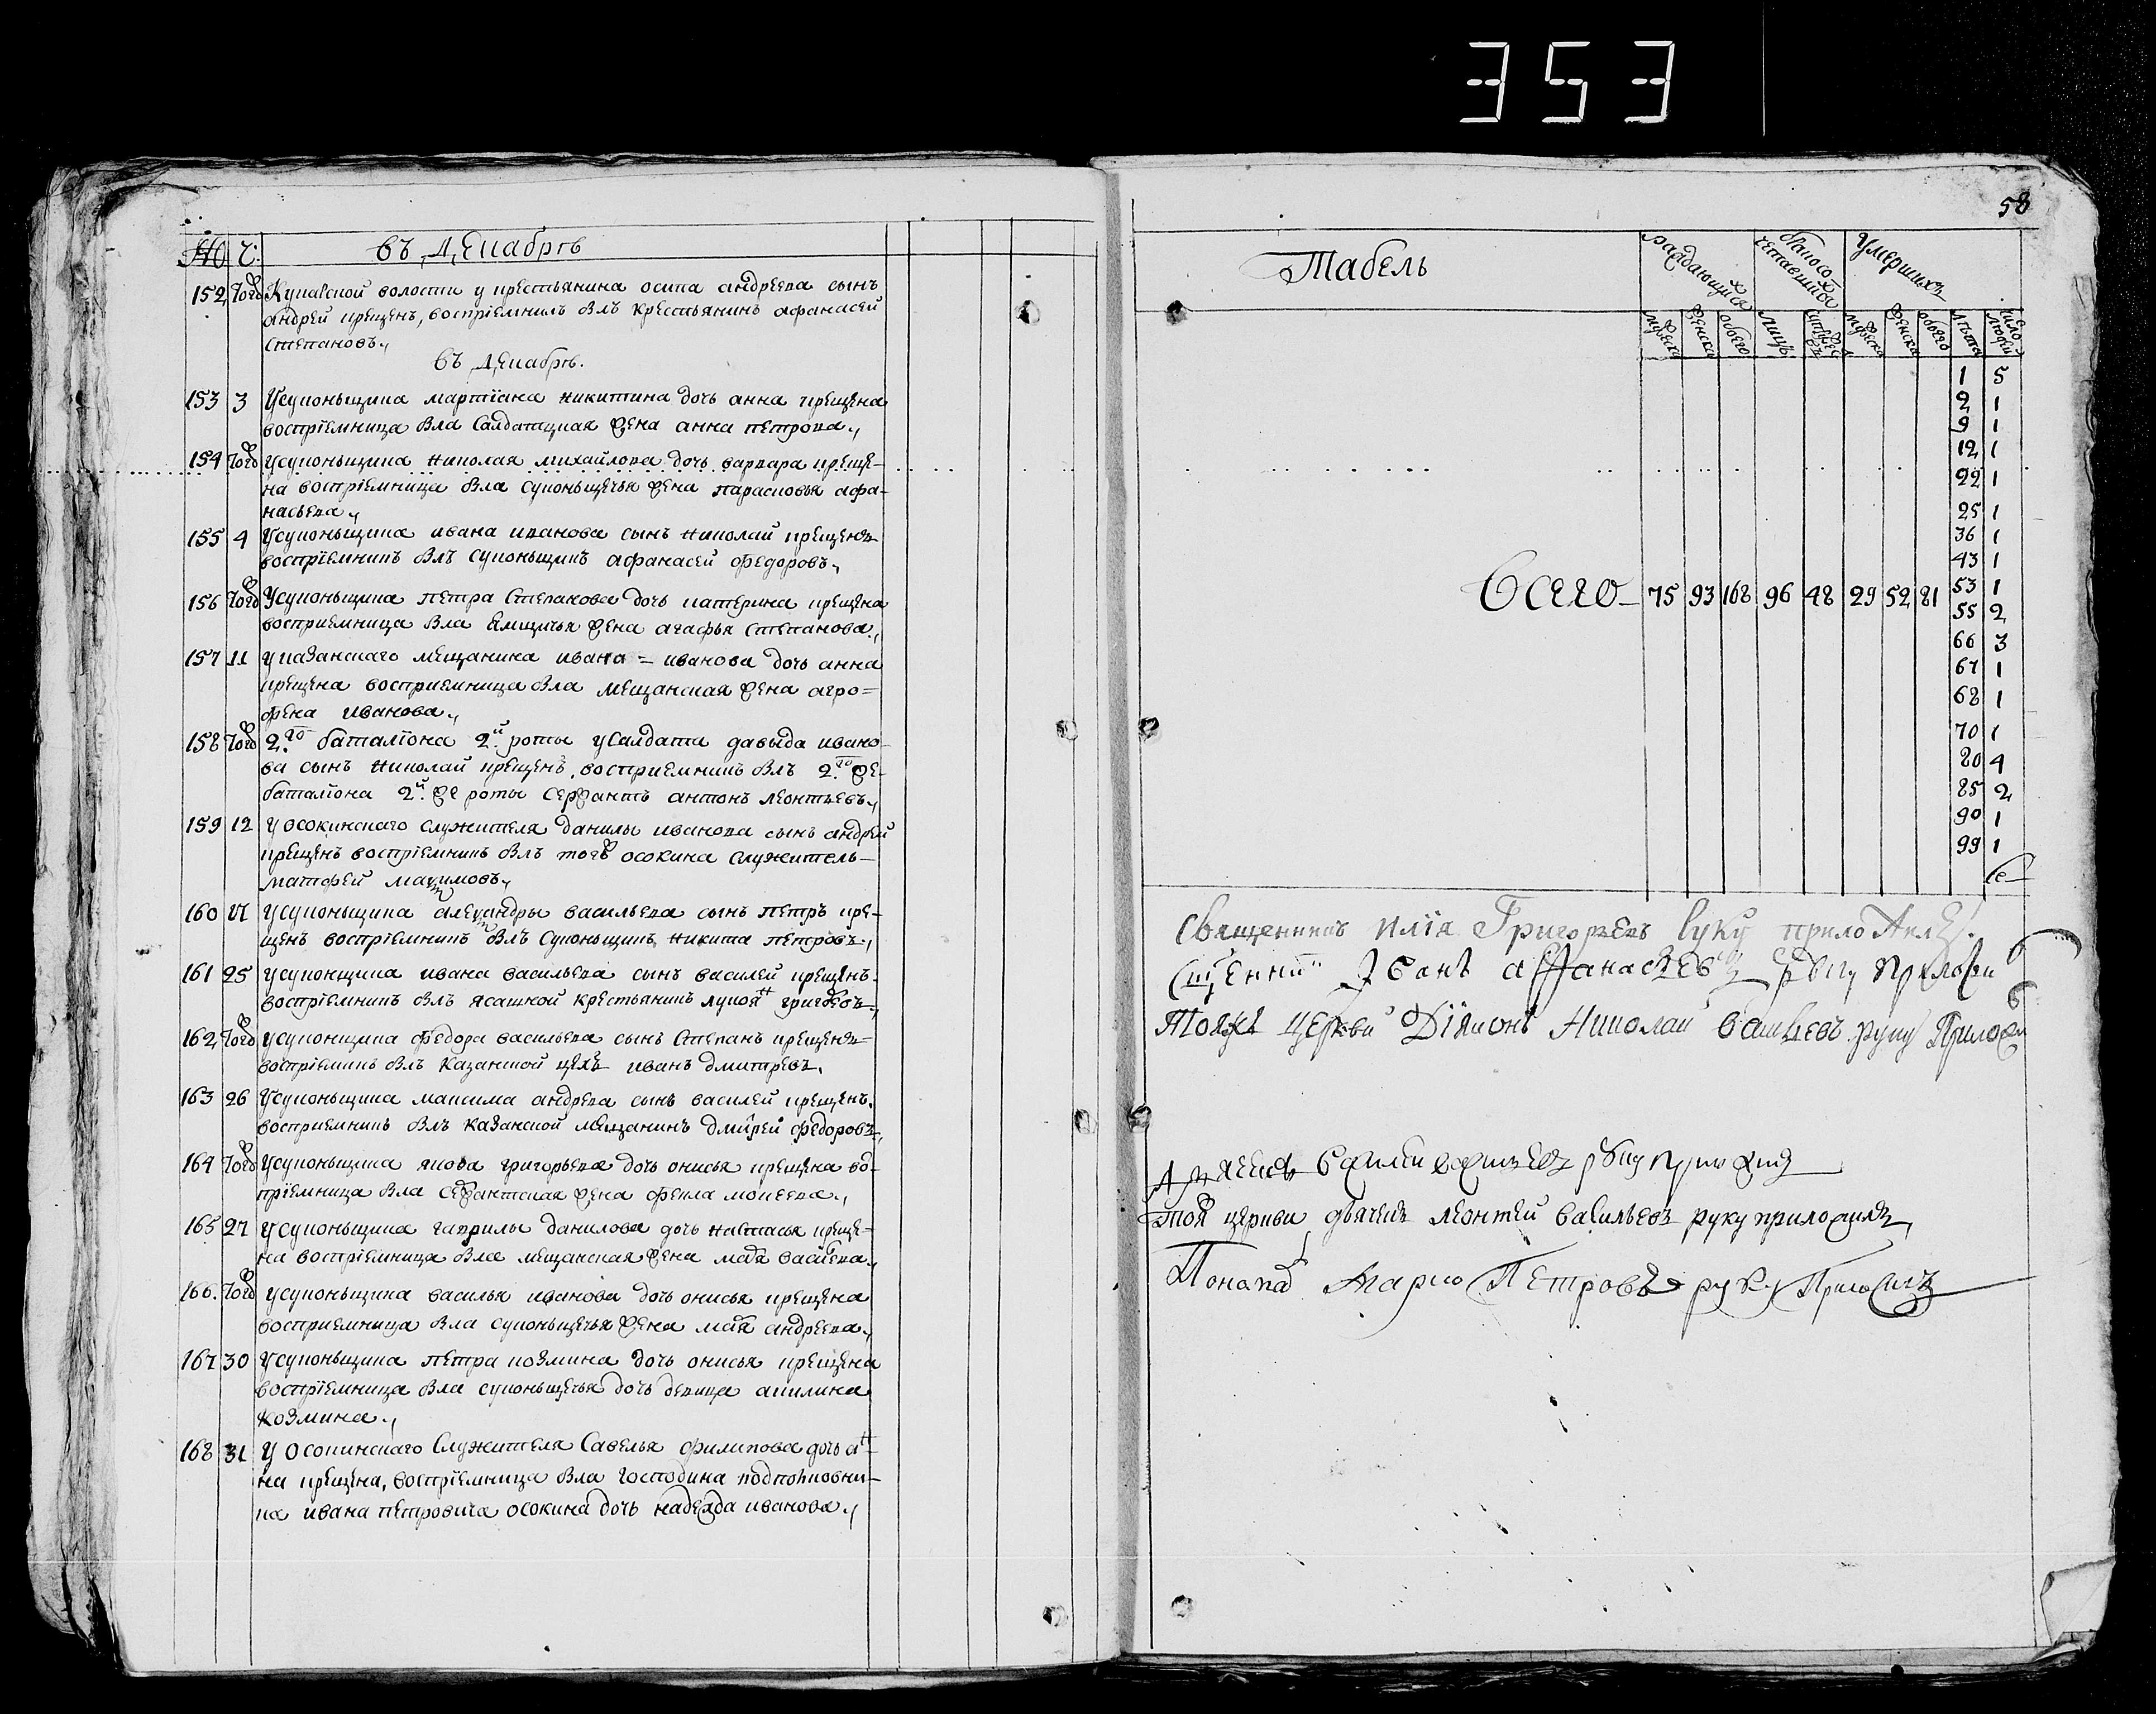 353
№ Ч: въ Декабрѣ
152 Того ж Купавской волости у крестьянина осипа андреева сынъ
андрей крещенъ, воспріемникъ былъ крестьянинъ афанасей
степановъ.,
въ Декабрѣ.
153 3 У суконьщика мартіана никитина дочь анна крещена
воспріемница была салдатцкая жена анна петрова.,
154 Того ж У суконьщика николая михайлова дочь варвара креще-
на воспріемница была суконьщечья жена парасковья афа-
насьева.,
155 4 У суконьщика ивана иванова сынъ николай крещенъ
воспріемникъ былъ суконьщикъ афанасей федоровъ.,
156 Того ж У суконьщика петра степанова дочь катерина крещена
восприемница была ямщичья жена агафья степанова.,
157 11 у казанскаго мещанина ивана = иванова дочь анна
крещена восприемница была мещанская жена агро=
фена иванова.,
158 Того ж 2.го баталіона 2.й роты у салдата давыда ивано-
ва сынъ николай крещенъ, восприемникъ былъ 2.го же-
баталіона 2й. же роты сержантъ антонъ леонтьевъ.,
159 12 У осокинскаго служителя данилы иванова сынъ андрей
крещенъ воспріемникъ былъ того ж осокина служитель-
матфей максимовъ.,
160 17 У суконьщика александры васильева сынъ петръ кре-
щенъ воспріемникъ былъ суконьщикъ никита петровъ.,
161 25 У суконщика ивана васильева сынъ василей крещенъ.
воспріемникъ былъ ясашной крестьянинъ лукоян григорьевъ.,
162 Того ж У суконщика федора васильева сынъ степанъ крещенъ=
воспріемникъ былъ казанской цеха иванъ дмитревъ.
163 26 У суконьщика максима андрева сынъ василей крещенъ.
восприемникъ былъ казанской мещанинъ дмитрей федоровъ.,
164 Того ж У суконьщика якова григорьева дочь онисья крещена во-
пріемница была сержантская жена фекла моисеева.,
165 27 У суконьщика гаврилы данилова дочь настасья креще=
на воспріемница была мещанская жена марья васильева.,
166. Того ж У суконьщика василья иванова дочь онисья крещена
восприемница была суконьщечья жена марья андреева.,
167 30 У суконьщика петра козмина дочь онисья крещена
воспріемница была суконьщечья дочь девица акилина
козмина.,
168 31 У Осокинскаго служителя Савелья филипова дочь ан-
на крещена, воспріемница была господина подполковни-
ка ивана петровича осокина дочь надежда иванова.,
58
Табель
раждающихся
бракосочетавшихся
умершихъ
мужеска женска обоего лицъ мужеска женска обоего лѣта число людей
1 5
2 1
9 1
12 1
22 1
25 1
36 1
43 1
Всего 75 93 168 96 48 29 52 81
53 1
55 2
66 3
67 1
68 1
70 1
80 4
85 2
90 1
99 1
Священникъ Илія Григорьевъ руку приложилъ
Священникъ Іванъ Афанасьевъ руку приложи
Тояжъ церкви Діяконъ Николай Васильевъ руку приложил
василей васильевъ руку приложил
той ж церкви дьячекъ леонтей васильевъ руку приложилъ,
Понамарь Марко Петровъ руку приложилъ